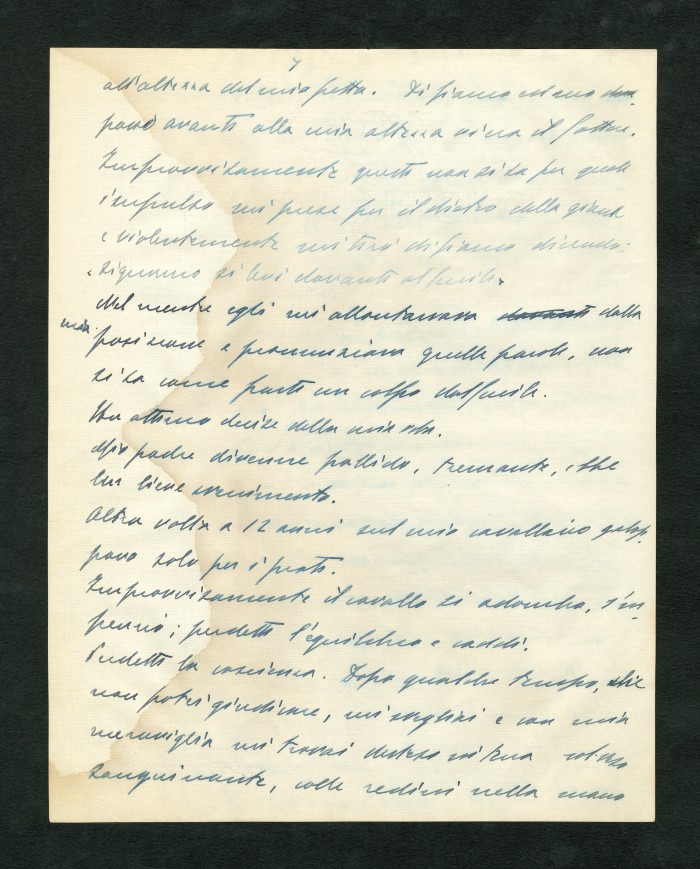 7
all'altezza del mio petto. Di fianco ed uno
passi avanti alla mia altezza vi era il fattore.
Improvvisamente questi non si sa per quale
impulso mi prese per il dietro della giacca
e violentemente mi tirò di fianco dicendo:
"Signorino si levi davanti al fucile"
Nel mentre egli mi allontanava davanti dalla
mia
posizione e pronunziava quelle parole, non
si sa come partì un colpo dal fucile.
Un attimo decise della mia vita.
Mio padre divenne pallido, tremante, ebbe
un lieve svenimento.
Altra volta a 12 anni sul mio cavallino galop-
pavo solo per i prati.
Improvvisamente il cavallo si adombra, s'im-
penna; perdetti l'equilibrio e caddi.
Perdetti la coscienza. Dopo qualche tempo, che
non potrei giudicare, mi svegliai e con mia
meraviglia mi trovai disteso in terra
sanguinante, colle redini nella mano